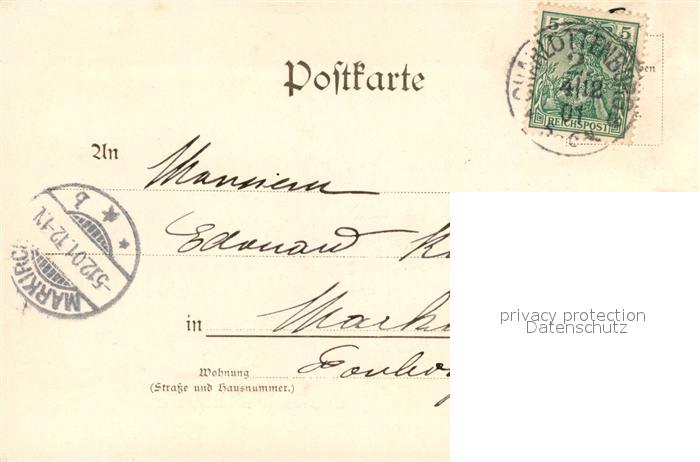 5 5
REICHSPOST
CHARLOTTENBURG
2
4/12
01
Postkarte
An Monsieur
Edouard
MARKIRCH
5.12.01.12-1N.
* b *
in Mark
Wohnung
(Straße und Hausnummer.)
privacy protection
Datenschutz